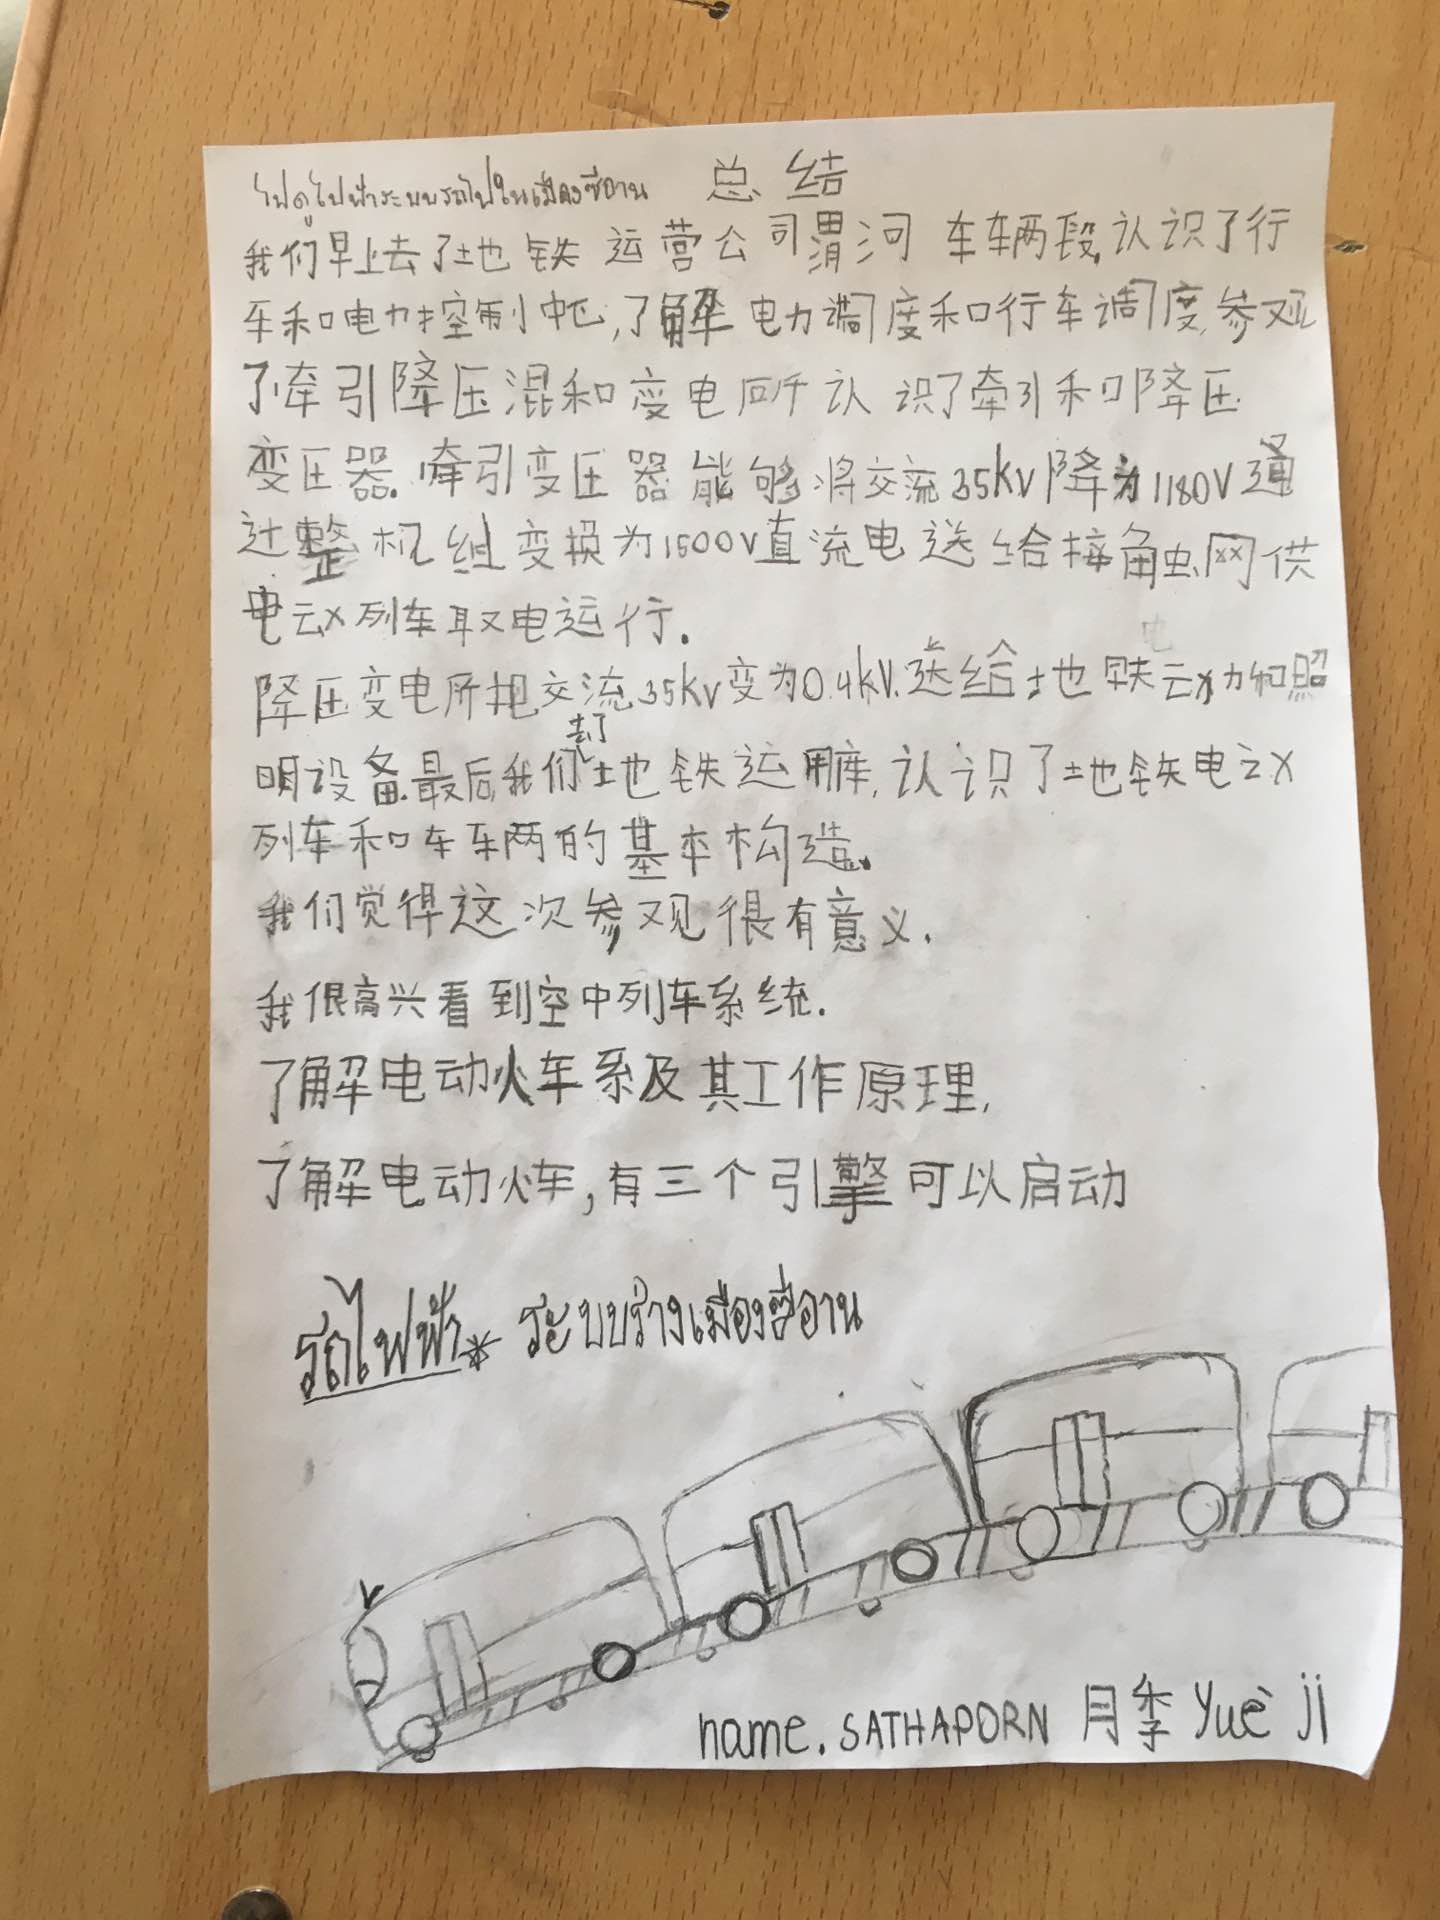 ไปดูไฟฟ้าระบบรถไฟในเมืองซีอาน 总结
我们早上去了地铁运营公司渭河车辆段,认识了行
车和电力控制中心,了解电力调度和行车调度,参观
了牵引降压混和变电所认识了牵引和降压
变压器.牵引变压器能够将交流35kV降为1180V通
过整机组变换为1500V直流电送给接触网供
电动列车取电运行.
降压变电所把交流35kV变为0.4kV.送给地铁动力和照
明设备.最后我们去了地铁运用库,认识了地铁电动
列车和车辆的基本构造.
我们觉得这次参观很有意义.
我很高兴看到空中列车系统.
了解电动火车系及其工作原理,
了解电动火车,有三个引擎可以启动
รถไฟฟ้า* ระบบรางเมืองซีอาน
name. SATHAPORN 月季 Yuè jì